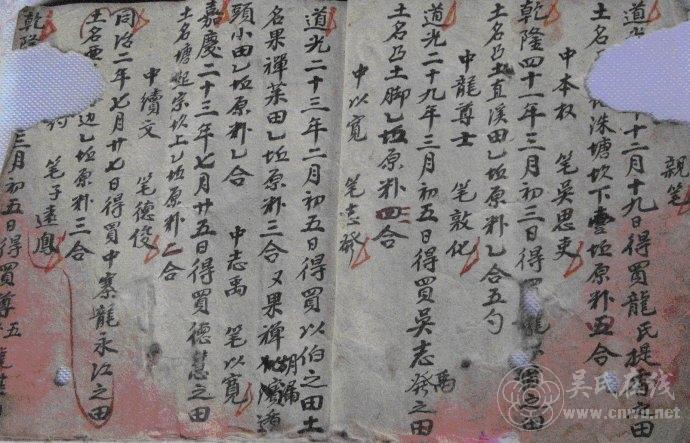 道光 十二月十九日得買龍氏 之田
土名 洙塘坎下壹坵原糾五合
親筆
中本权 筆吴思吏
乾隆四十一年三月初三日得 之田
土名乃土直溪田乙坵原糾乙合五勺
中龍尊士 筆敦化
道光二十九年三月初五日得買吴志癸之田
禹
土名乃土脚乙坵原糾四合
中以寬 筆志
道光二十三年二月初五日得買以伯之田土
名果禅菜田乙坵原糾三合又果禅
頭小田乙坵原糾乙合 中志禹 筆以寬
嘉慶二十三年七月廿五日得買德慧之田
土名塘 宗坎上乙坵原糾二合
中續文 筆德俊
同治二年七月廿七日得買中寨龍永江之田
土名 边乙坵原糾三合
筆子 鳳
乾隆 三月初五日得買尊五
吴氏在线
www.cnwu.net